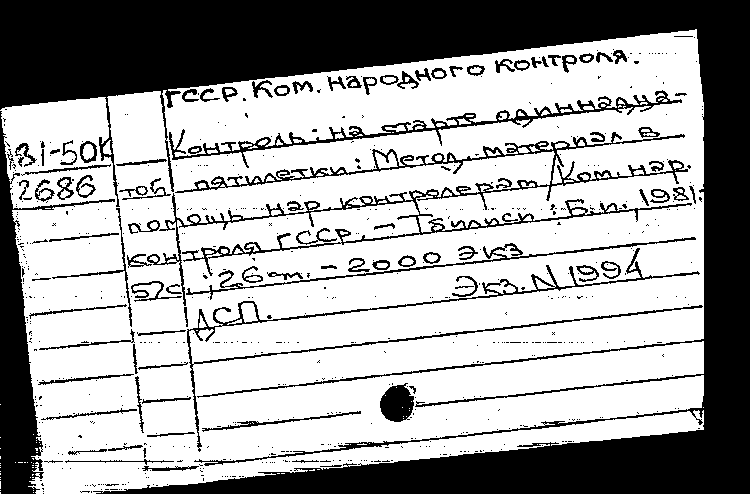 ГССР. Ком. народного контроля.
81-50К
2686
Контроль: на старте одиннадца-
той пятилетки: Метод. материал в
помощь нар. контролерам / Ком. нар.
контроля ГССР. – Тбилиси : Б.и., 1981.
57с. ; 26 см. – 2000 экз
ДСП. Экз. N 1994